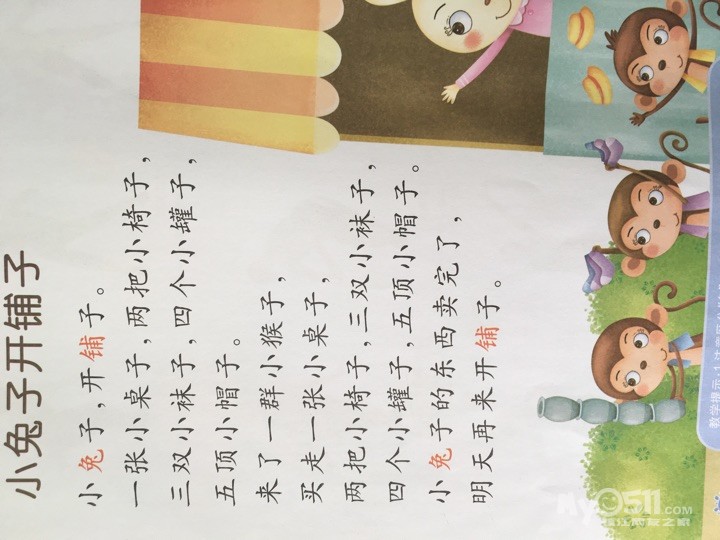 小兔子开铺子
小兔子,开铺子。
一张小桌子,两把小椅子,
三双小袜子,四个小罐子,
五顶小帽子。
来了一群小猴子,
买走一张小桌子,
两把小椅子,三双小袜子,
四个小罐子,五顶小帽子。
小兔子的东西卖完了,
明天再来开铺子。
My0511.com